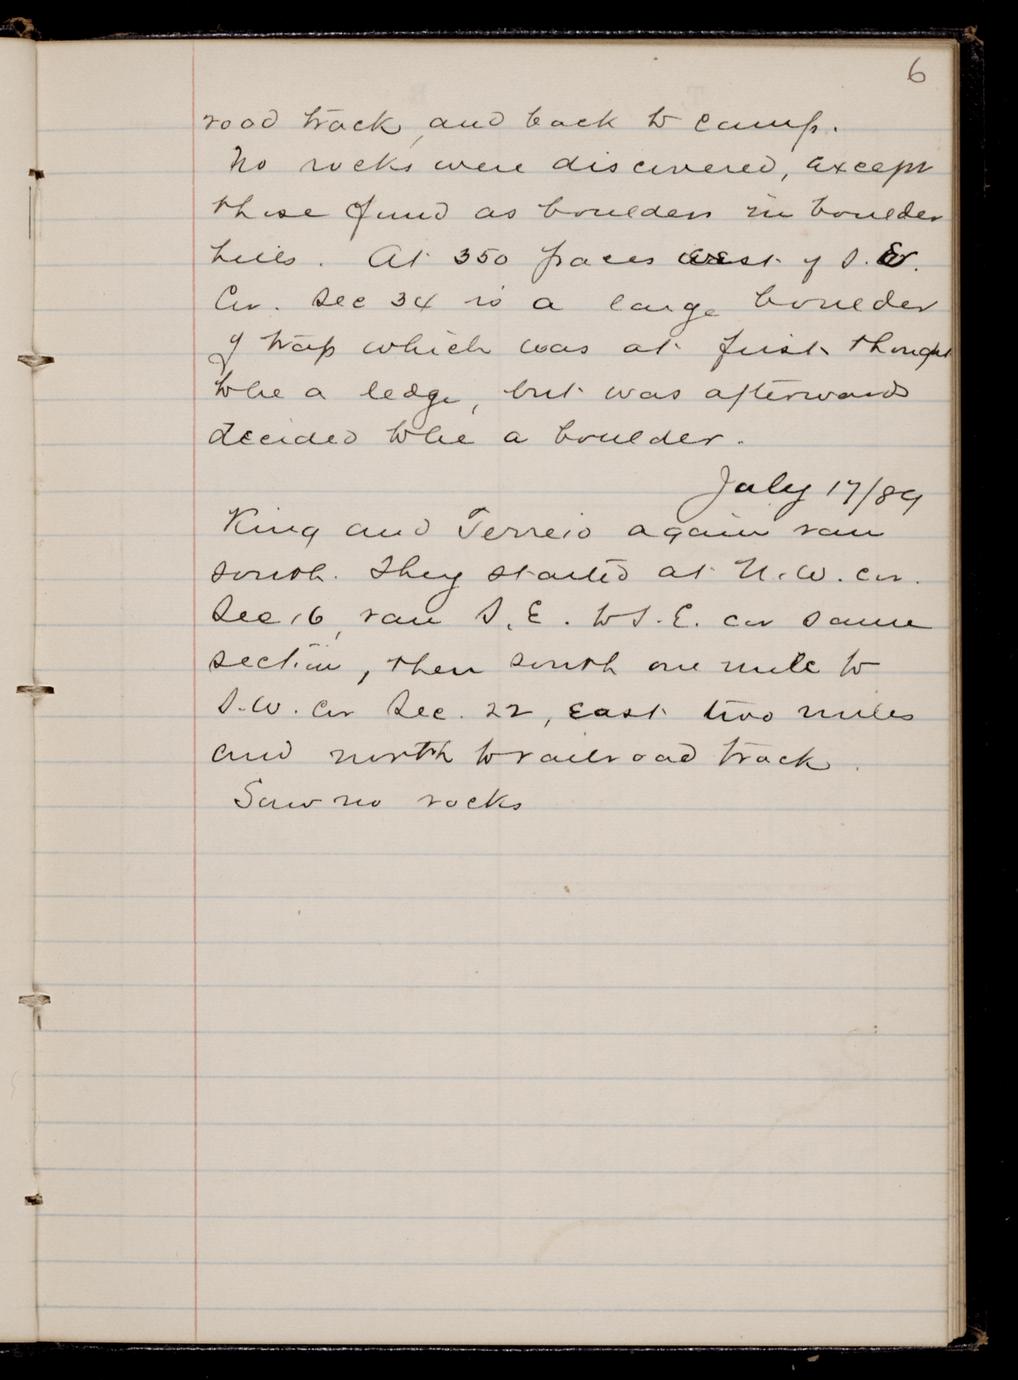 6
road track, and back to camp.
No rocks were discovered, except
those found as boulders in boulder
hills. At 350 paces west of S.
Cor. Sec 34 is a large boulder
of trap which was at first thought
to be a ledge, but was afterwards
decided to be a boulder.
July 17/89
King and again ran
south. They started at N.W. cor.
Sec 16, ran S.E. to S.E. cor same
section, then south one mile to
S.W. cor Sec. 22, east two miles
and north to railroad track.
Saw no rocks